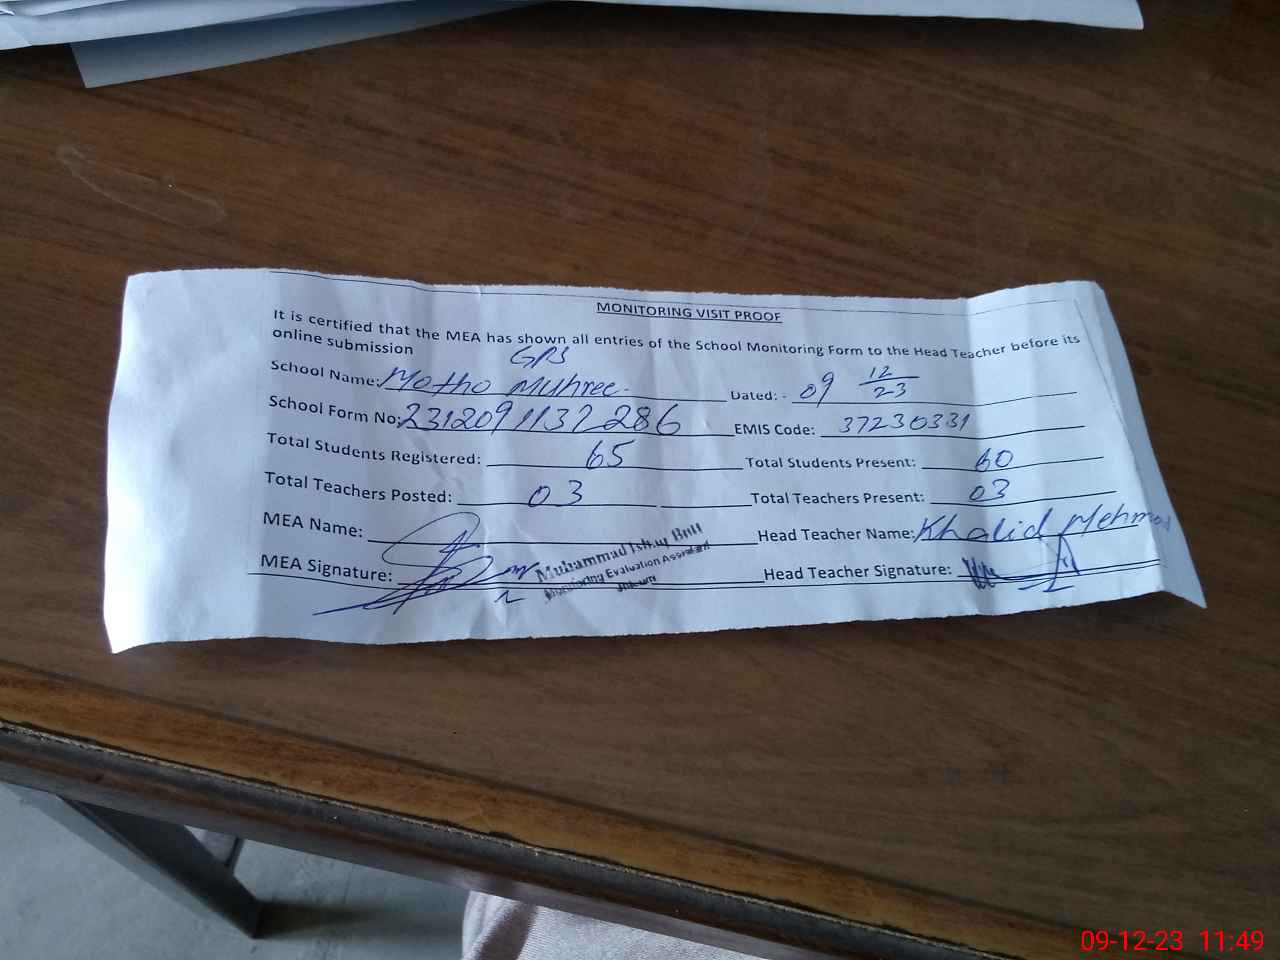 MONITORING VISIT PROOF
It is certified that the MEA has shown all entries of the School Monitoring Form to the Head Teacher before its
online submission
GPS
School Name: Motho Muhree Dated: - 09 12/23
School Form No: 2312091137286 EMIS Code: 37230331
Total Students Registered: 65 Total Students Present: 60
Total Teachers Posted: 03 Total Teachers Present: 03
MEA Name: Head Teacher Name: Khalid Mehmod
Muhammad Ishaq Butt
MEA Signature: Head Teacher Signature:
Monitoring Evaluation Assistant
09-12-23 11:49